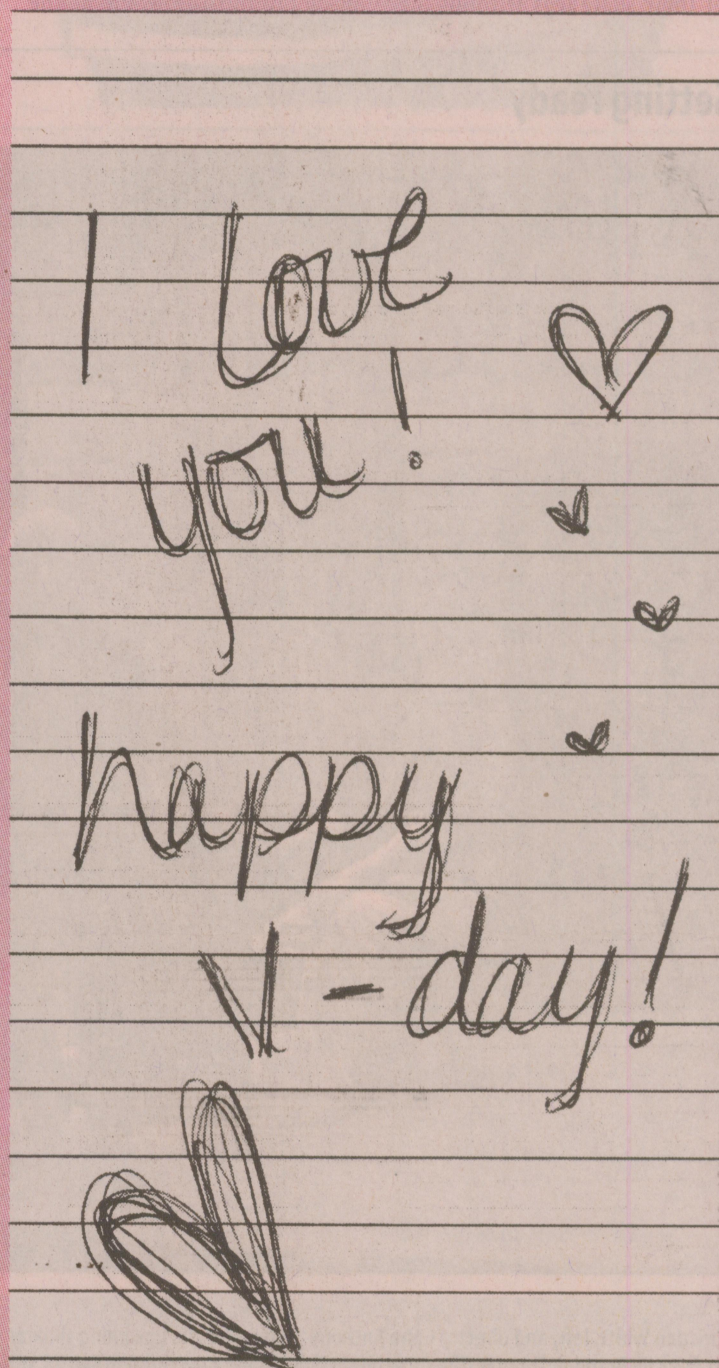 I Love
you!
happy
V-day!